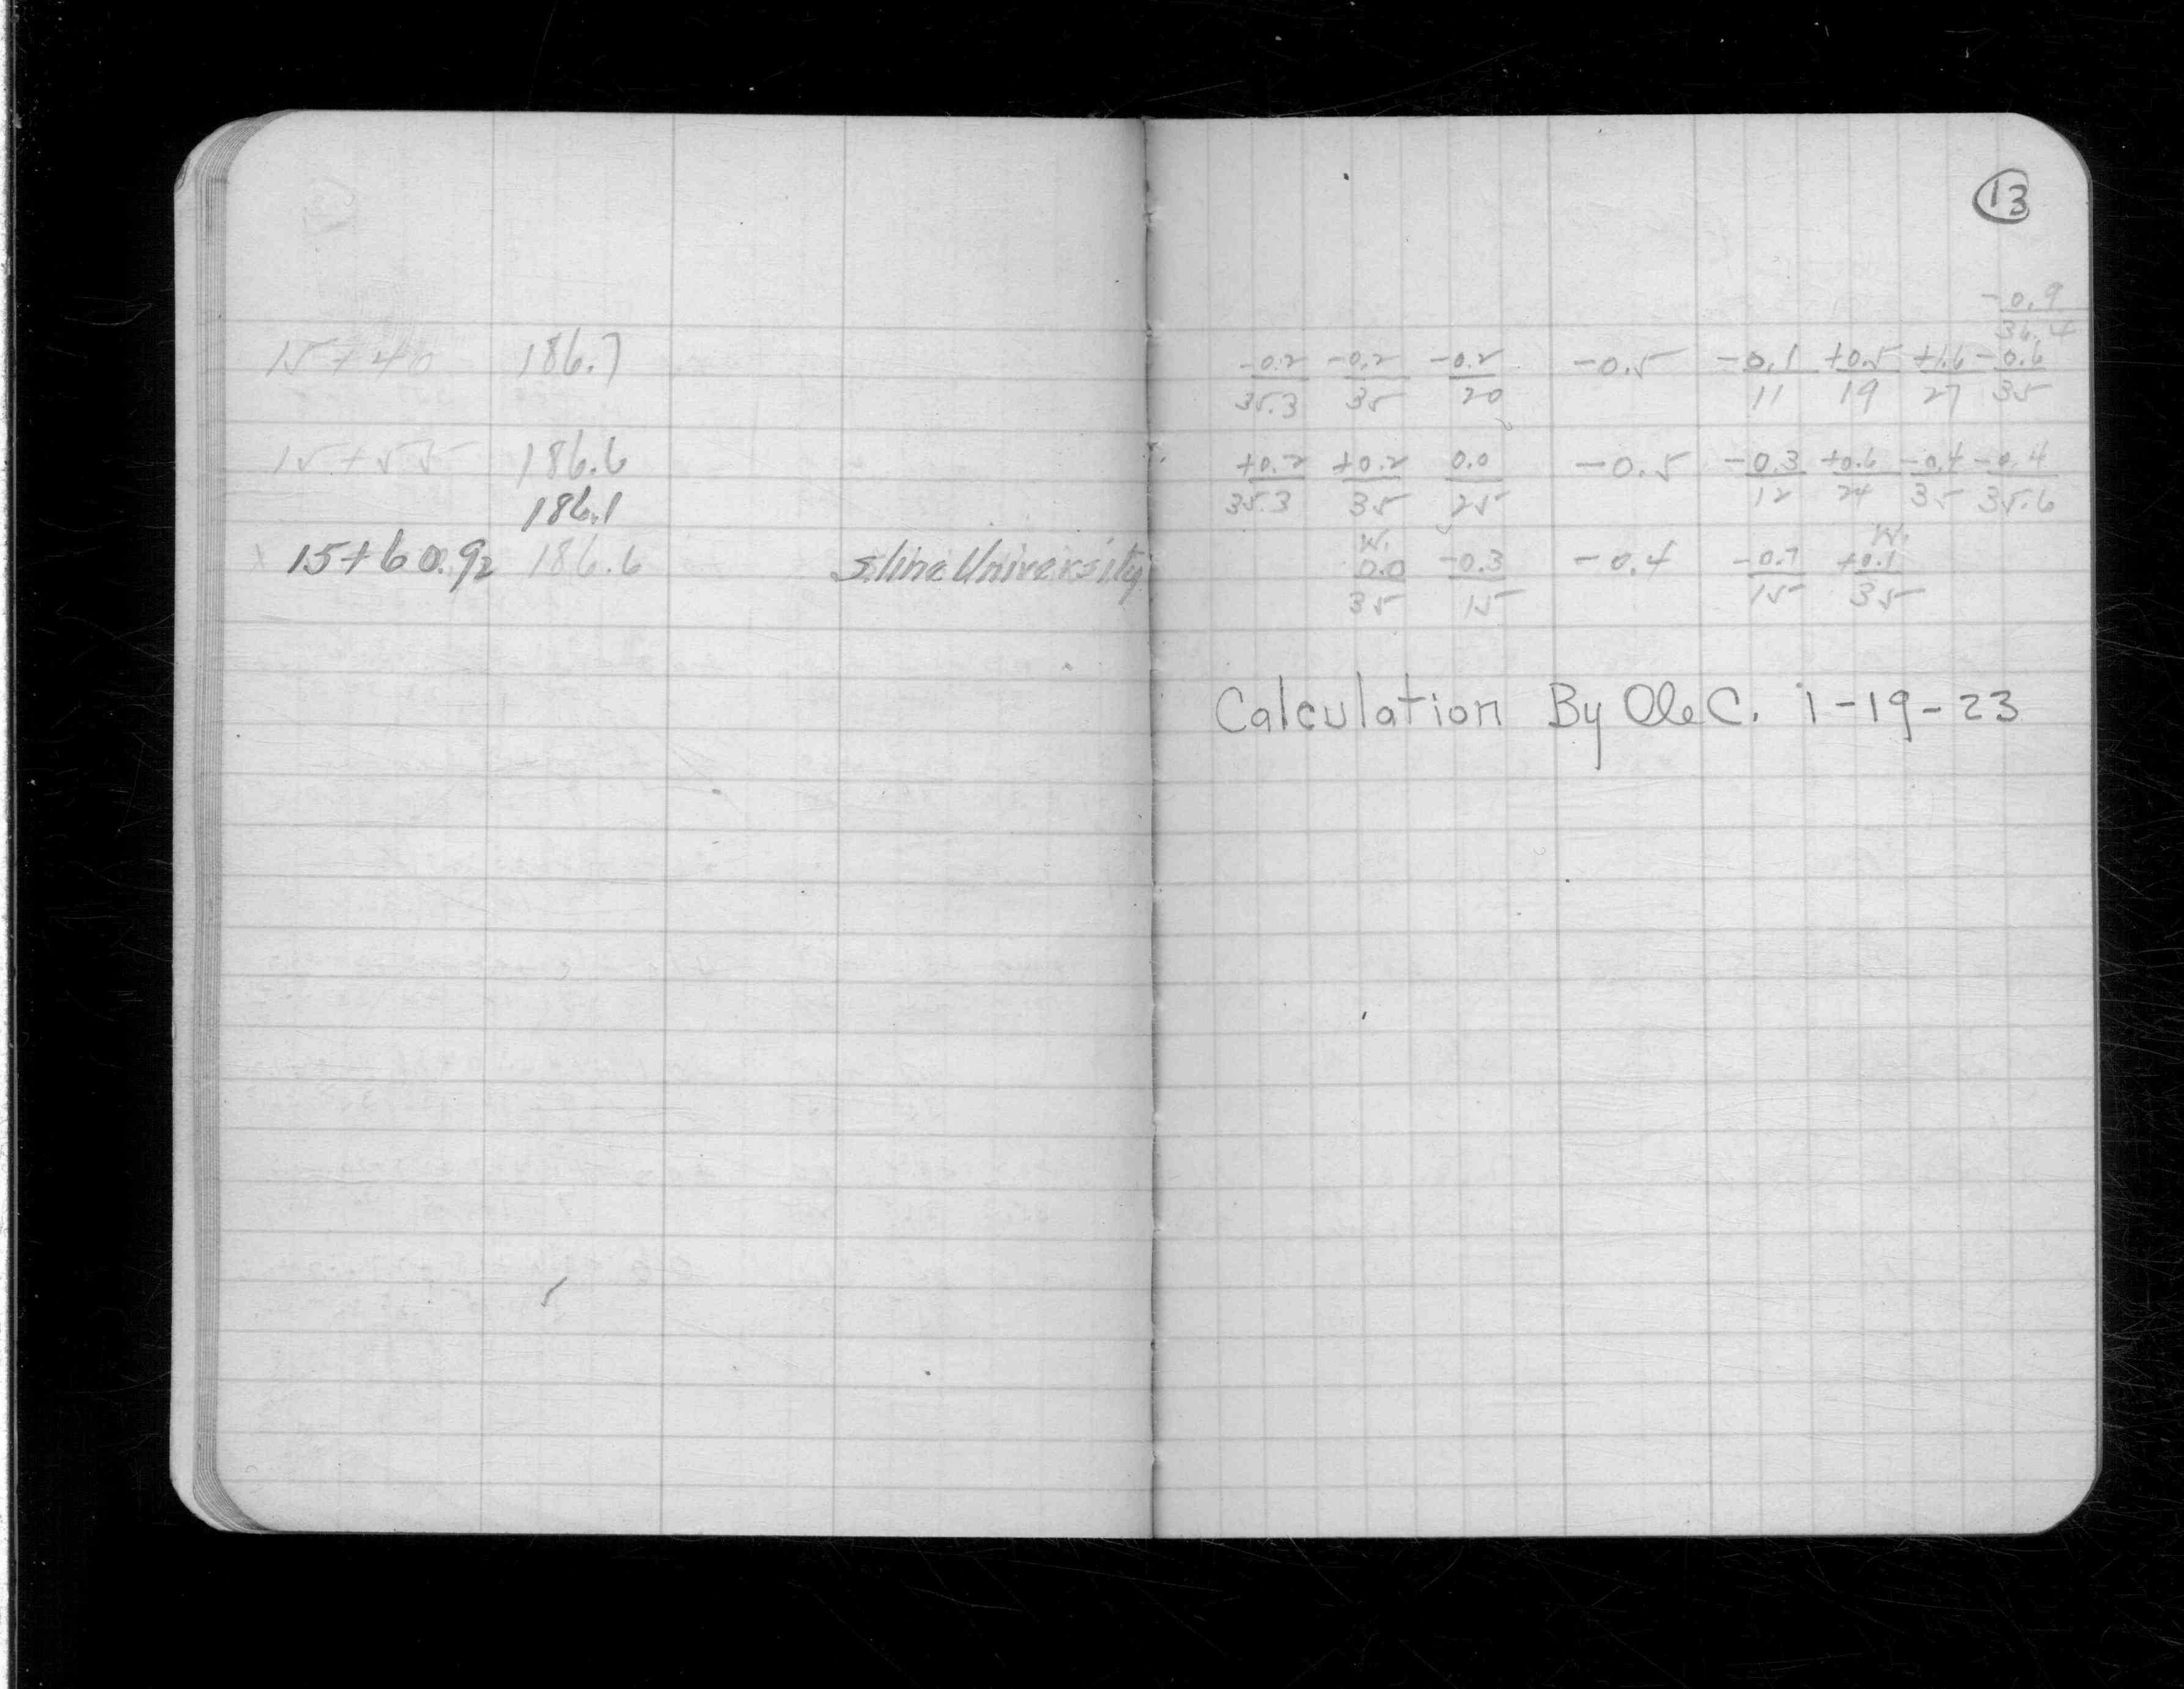 13
-0.9
36.4
15+40 186.7 -0.2 -0.2 -0.2 -0.5 -0.1 +0.5 +1.6 -0.6
35.3 35 20 11 19 27 35
15+55 186.6 +0.2 +0.2 0.0 -0.5 -0.3 +0.6 -0.4 -0.4
186.1 35.3 35 25 12 24 35 35.6
W. W.
x 15+60.92 186.6 S. line University 0.0 -0.3 -0.4 -0.7 +0.1
35 15 15 35
Calculation By Ole C. 1-19-23